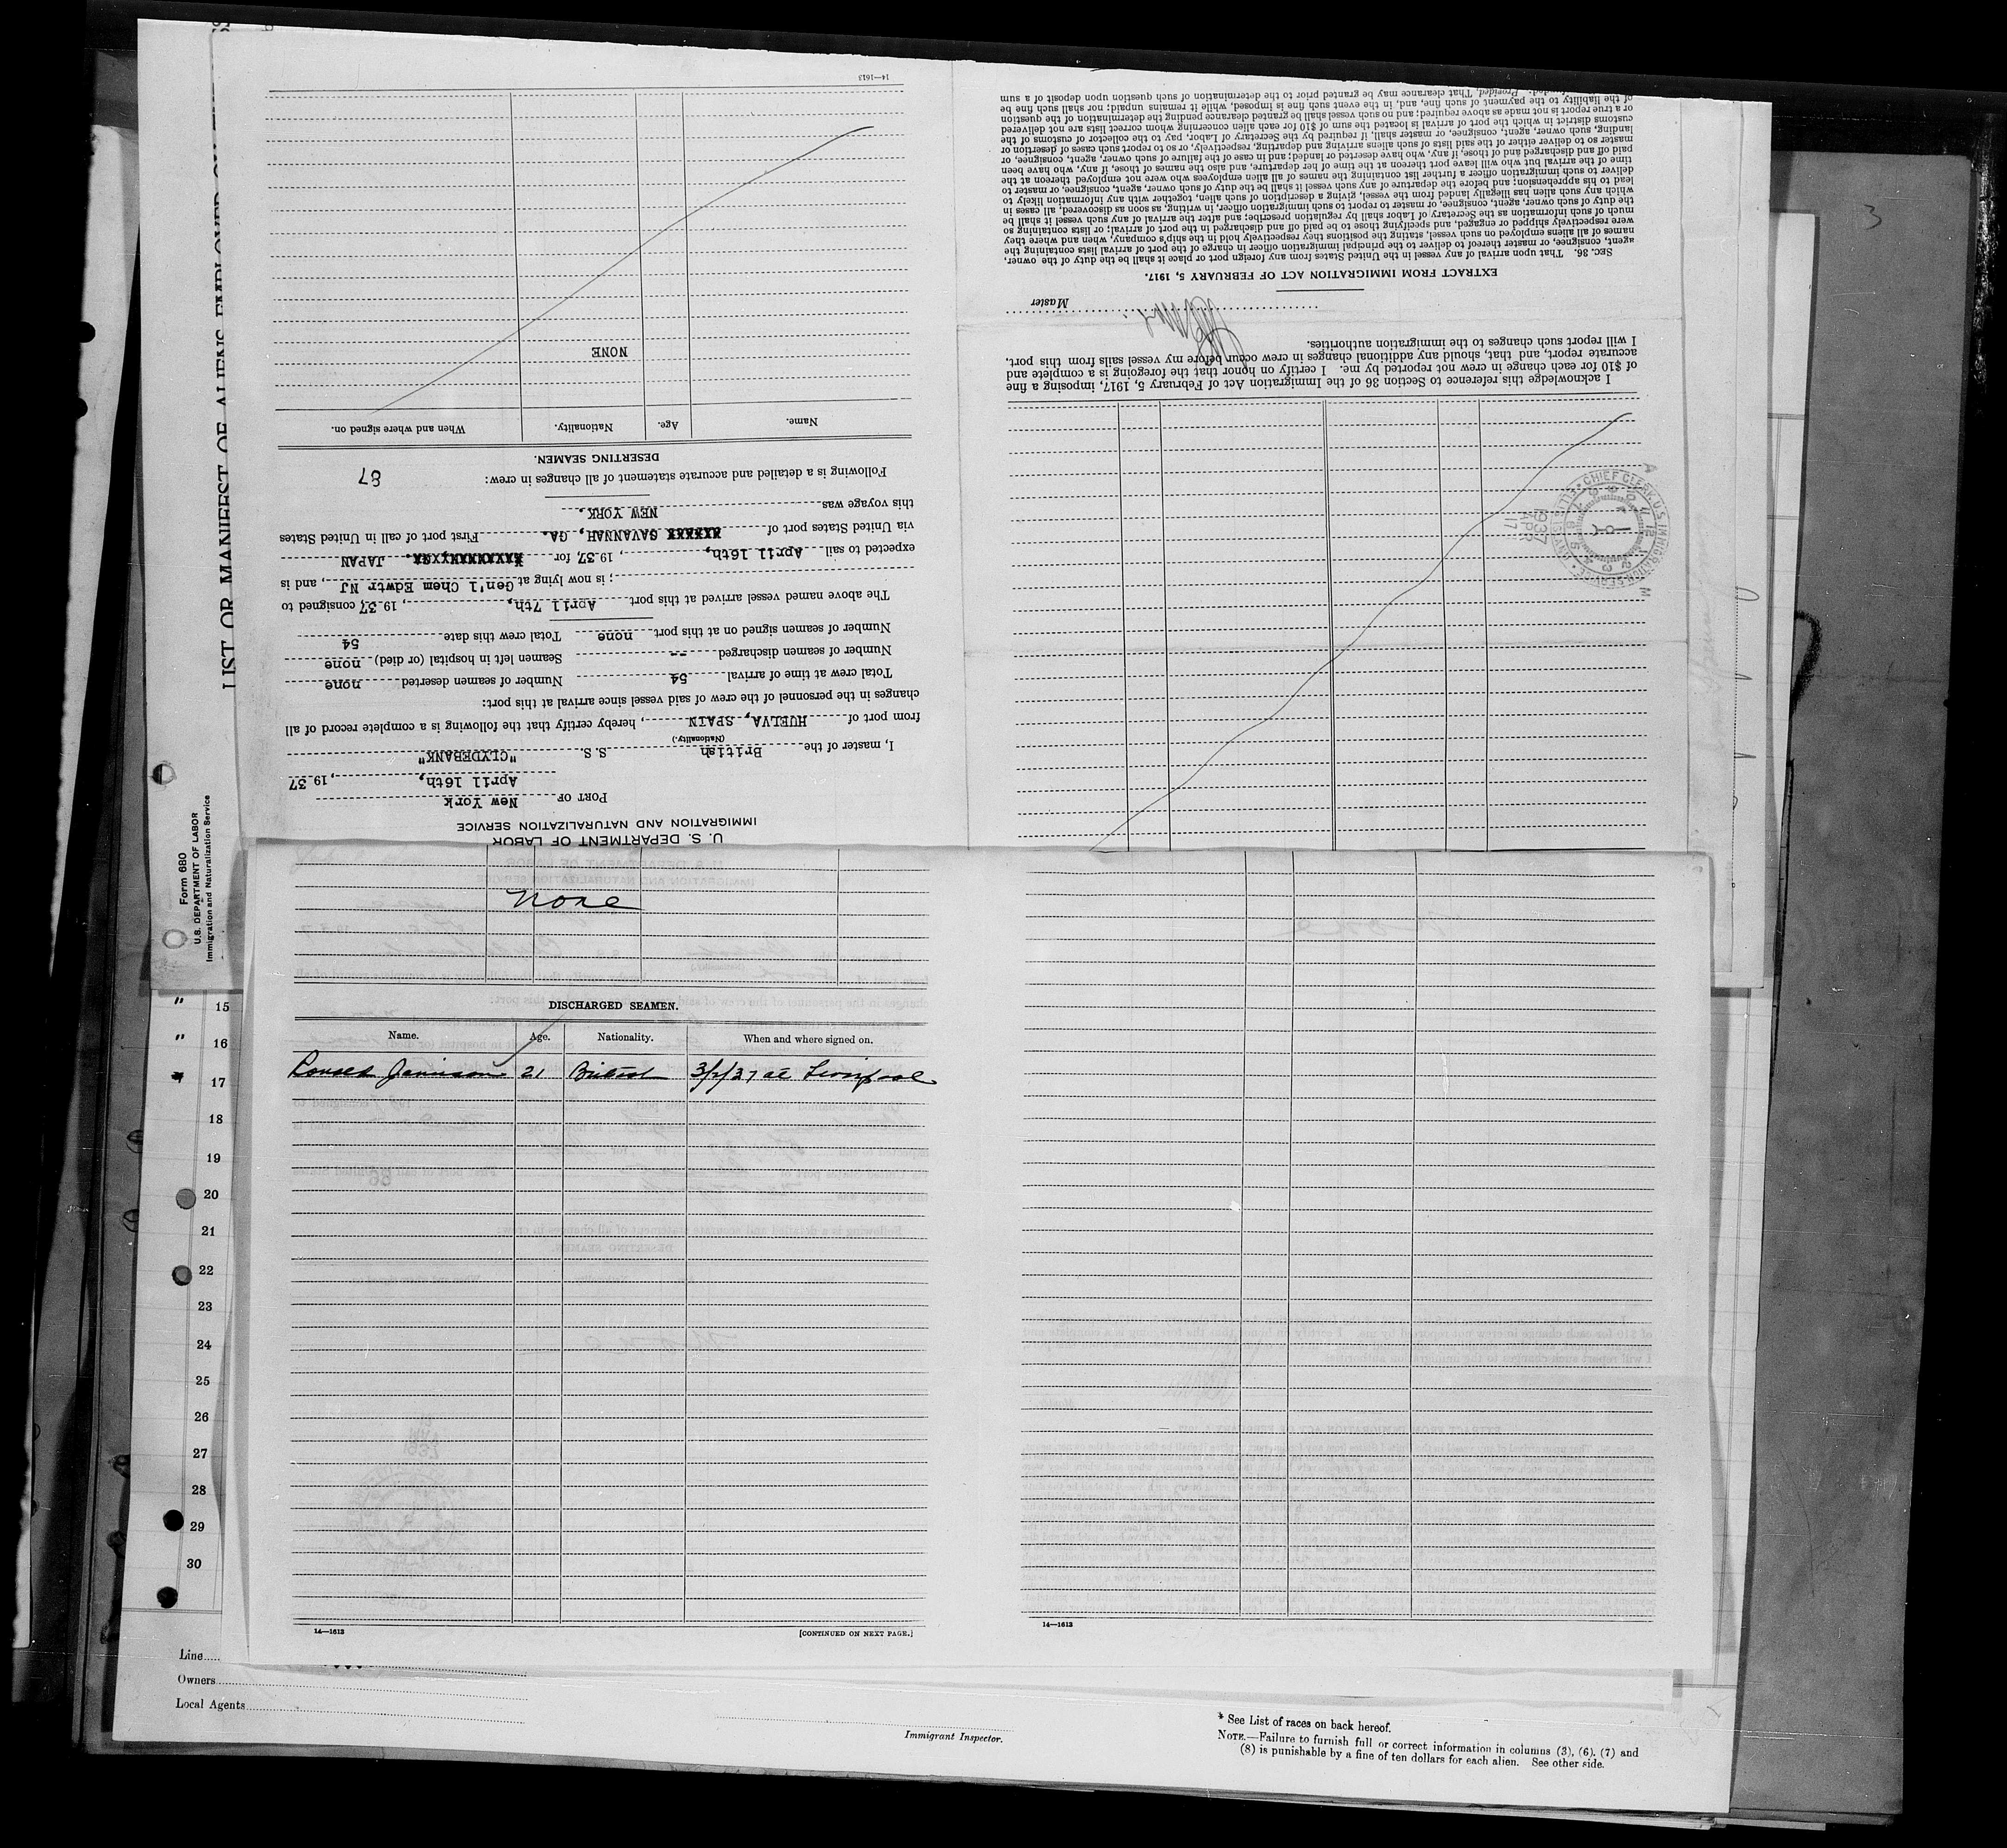 LIST OR MANIFEST OF ALIENS EMPLOYED
Form 680
U.S. DEPARTMENT OF LABOR
Immigration and Naturalization Service
U. S. DEPARTMENT OF LABOR
IMMIGRATION AND NATURALIZATION SERVICE
PORT OF New York
April 16th, 1937
I, master of the British S.S. "CLYDEBANK"
(Nationality.)
from port of HUELVA, SPAIN, hereby certify that the following is a complete record of all
changes in the personnel of the crew of said vessel since arrival at this port:
Total crew at time of arrival 54 Number of seamen deserted none
Number of seamen discharged -- Seamen left in hospital (or died) none
Number of seamen signed on at this port none Total crew this date 54
The above named vessel arrived at this port April 7th, 1937, consigned to
; is now lying at Gen'l Chem Edwtr NJ, and is
expected to sail April 16th, 1937, for JAPAN
via United States port of SAVANNAH, GA. First port of call in United States
this voyage was NEW YORK.
Following is a detailed and accurate statement of all changes in crew: 87
DESERTING SEAMEN.
Name. Age. Nationality. When and where signed on.
NONE
14—1613
I acknowledge this reference to Section 36 of the Immigration Act of February 5, 1917, imposing a fine
of $10 for each change in crew not reported by me. I certify on honor that the foregoing is a complete and
accurate report, and that, should any additional changes in crew occur before my vessel sails from this port,
I will report such changes to the immigration authorities.
Master
EXTRACT FROM IMMIGRATION ACT OF FEBRUARY 5, 1917.
SEC. 36. That upon arrival of any vessel in the United States from any foreign port or place it shall be the duty of the owner,
agent, consignee, or master thereof to deliver to the principal immigration officer in charge of the port of arrival lists containing the
names of all aliens employed on such vessel, stating the positions they respectively hold in the ship's company, when and where they
were respectively shipped or engaged, and specifying those to be paid off and discharged in the port of arrival; or lists containing so
much of such information as the Secretary of Labor shall by regulation prescribe; and after the arrival of any such vessel it shall be
the duty of such owner, agent, consignee, or master to report to such immigration officer, in writing, as soon as discovered, all cases in
which any such alien has illegally landed from the vessel, giving a description of such alien, together with any information likely to
lead to his apprehension; and before the departure of any such vessel it shall be the duty of such owner, agent, consignee, or master to
deliver to such immigration officer a further list containing the names of all alien employees who were not employed thereon at the
time of the arrival but who will leave port thereon at the time of her departure, and also the names of those, if any, who have been
paid off and discharged and of those, if any, who have deserted or landed; and in case of the failure of such owner, agent, consignee, or
master so to deliver either of the said lists of such aliens arriving and departing, respectively, or so to report such cases of desertion or
landing, such owner, agent, consignee, or master shall, if required by the Secretary of Labor, pay to the collector of customs of the
customs district in which the port of arrival is located the sum of $10 for each alien concerning whom correct lists are not delivered
or a true report is not made as above required; and no such vessel shall be granted clearance pending the determination of the question
of the liability to the payment of such fine, and, in the event such fine is imposed, while it remains unpaid; nor shall such fine be
Provided, That clearance may be granted prior to the determination of such question upon deposit of a sum
CHIEF CLERK U.S. IMMIGRATION SERVICE
1937
APR
17
3
none
DISCHARGED SEAMEN.
Name. Age. Nationality. When and where signed on.
Ronald Jamison 21 British 3/2/37 at Liverpool
14—1613 [CONTINUED ON NEXT PAGE.]
14—1613
" 15
" 16
" 17
18
19
20
21
22
23
24
25
26
27
28
29
30
Line
Owners
Local Agents
Immigrant Inspector.
* See List of races on back hereof.
NOTE.—Failure to furnish full or correct information in columns (3), (6), (7) and
(8) is punishable by a fine of ten dollars for each alien. See other side.